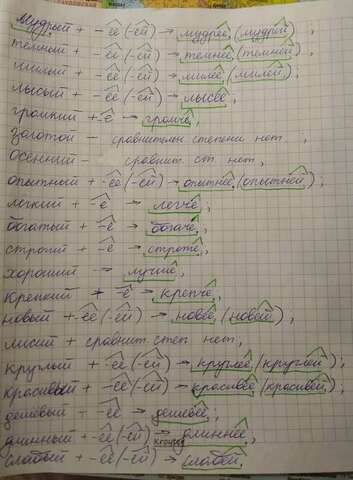 мудрый + -ее (-ей) → мудрее, (мудрей) ;
темный + -ее (-ей) → темнее, (темней) ;
милый + -ее (-ей) → милее, (милей) ;
лысый + -ее (-ей) → лысее,
громкий + -е → громче,
золотой - сравнительн степени нет.
Осенний - сравнит. ст нет,
опытный + -ее (-ей) → опытнее, (опытней) ;
легкий + -е → легче ;
богатый + -е → богаче,
строгий + -е → строже ;
хороший → лучше,
крепкий + -е → крепче,
новый + -ее (-ей) → новее, (новей) ;
лисий + сравнит. степ нет,
круглый + -ее (-ей) → круглее, (круглей) ;
красивый + -ее (-ей) → красивее, (красивей) ;
дешевый - -ее → дешевее,
длинный + -ее (-ей) → длиннее,
слабый + -ее (-ей) → слабей,